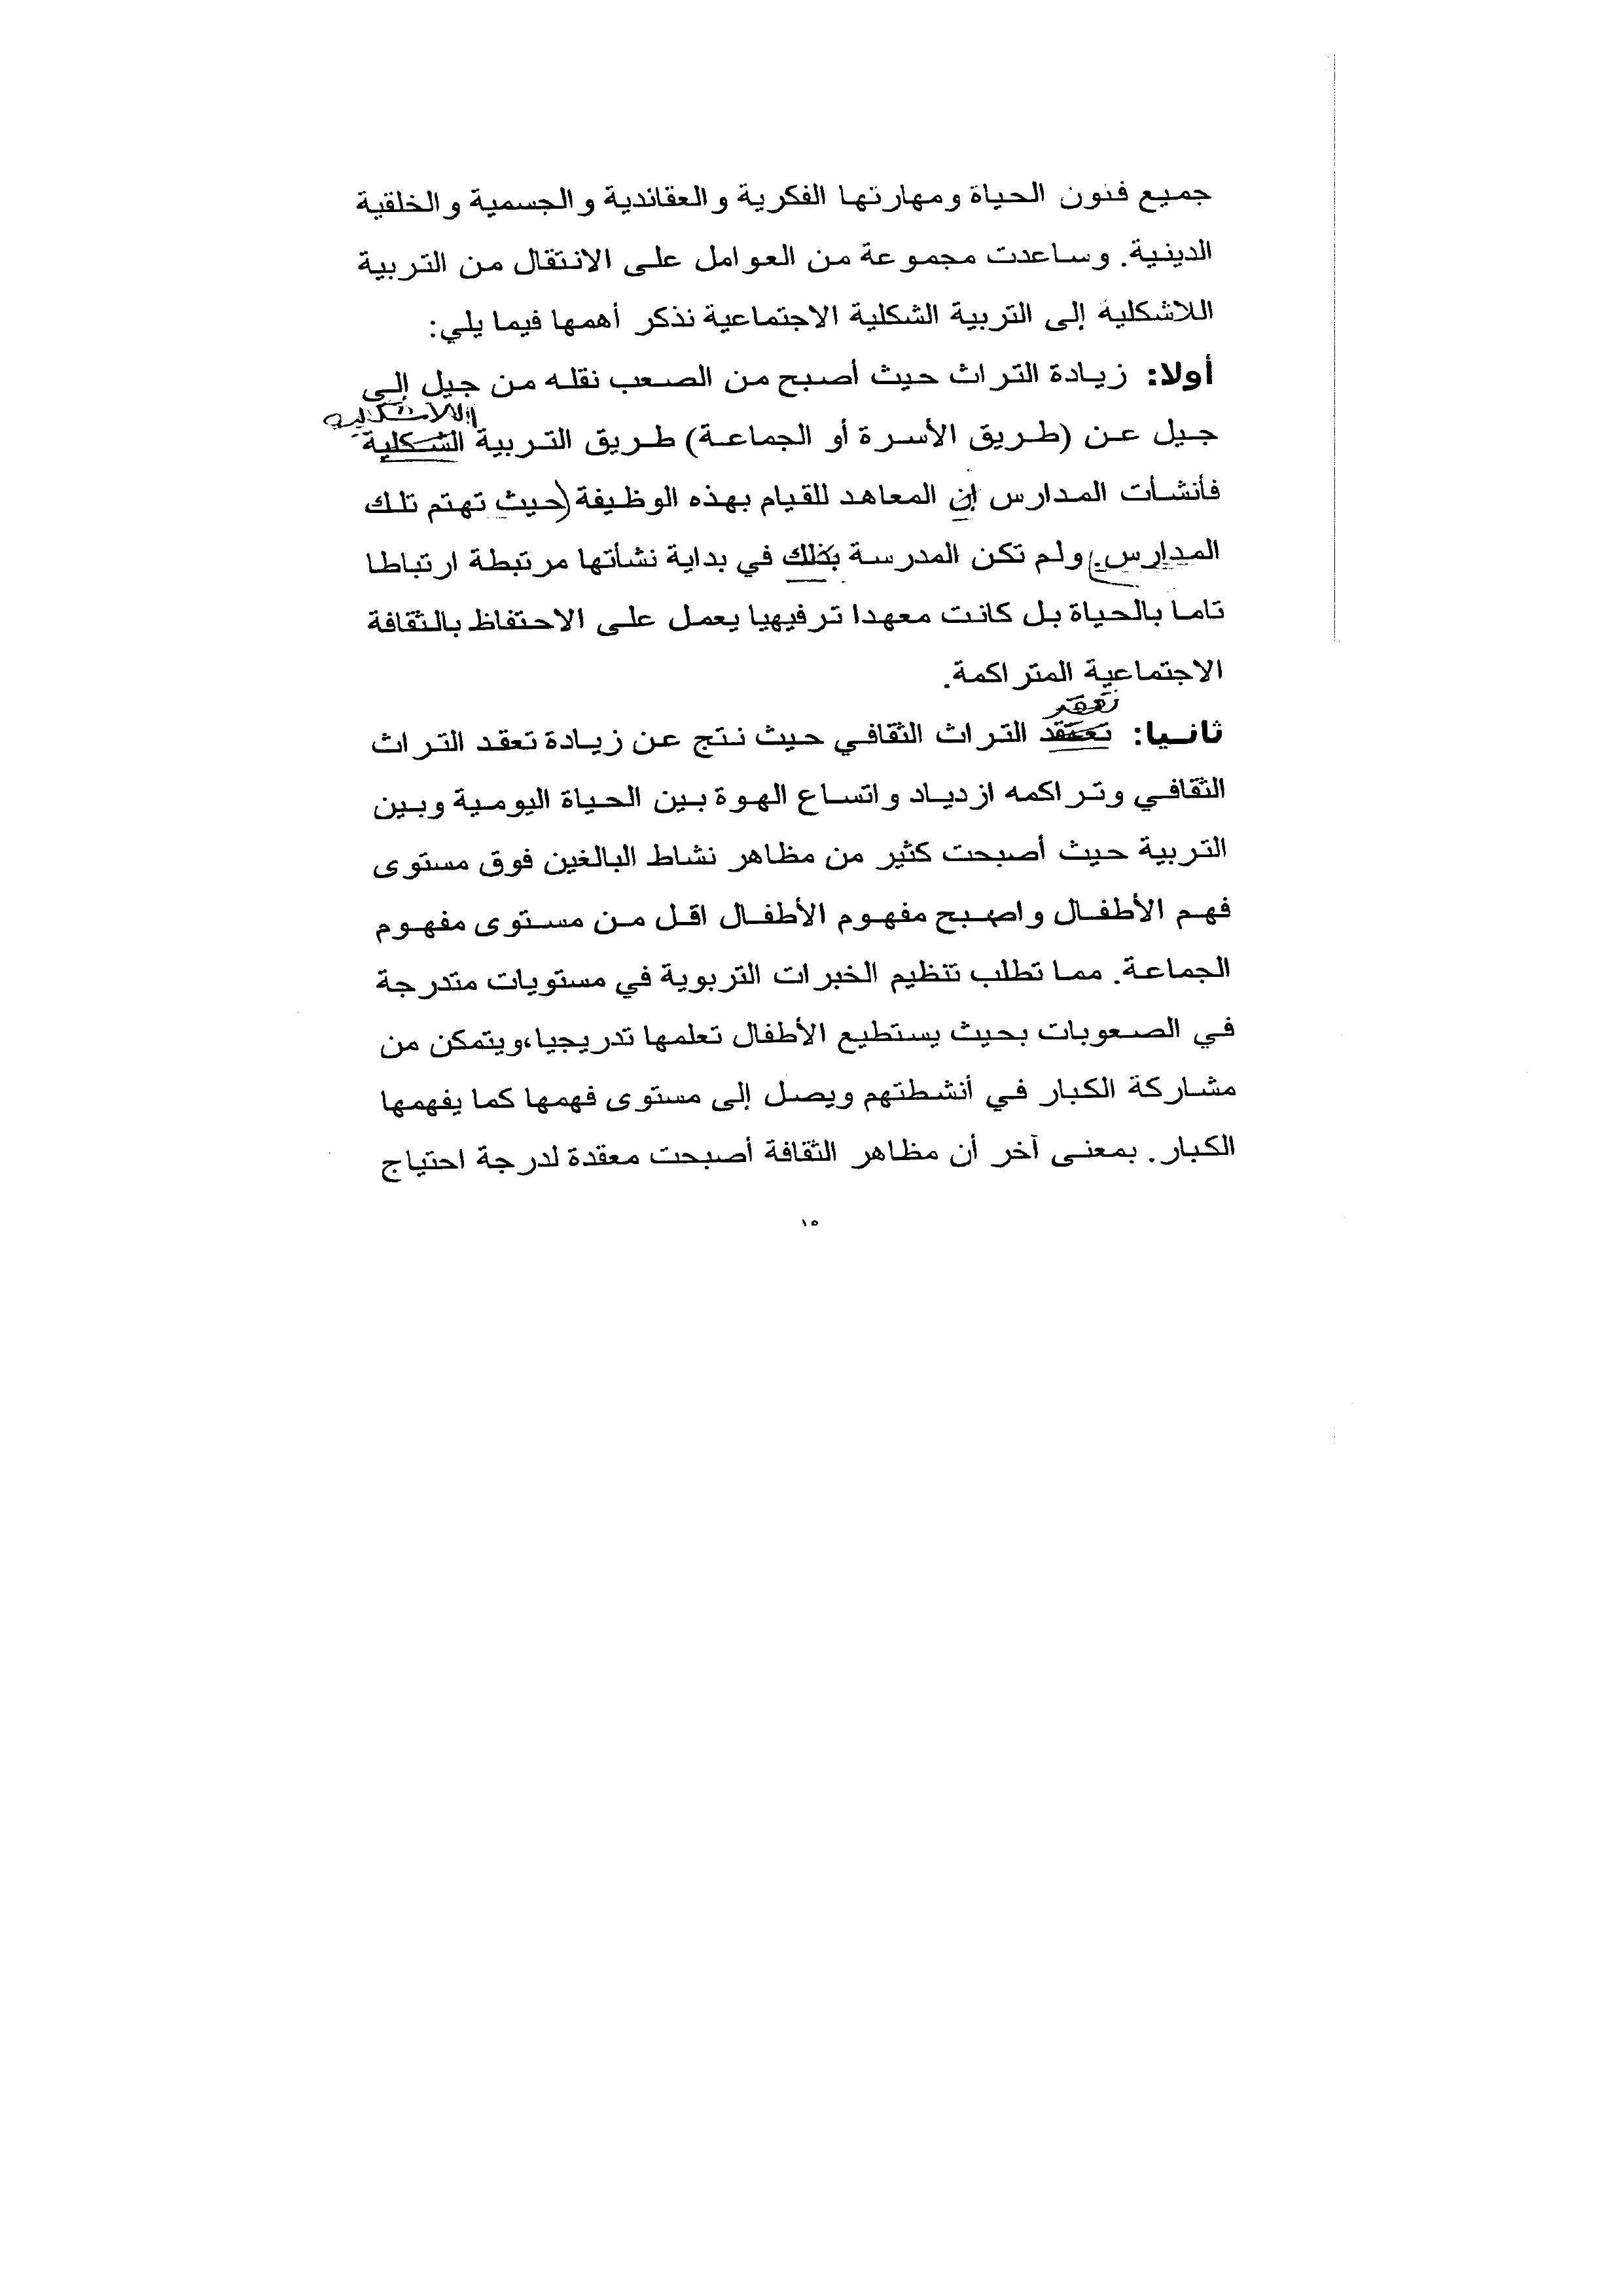 جميع فنون الحياة ومهارتها الفكرية والعقائدية والجسمية والخلقية
الدينية. وساعدت مجموعة من العوامل على الانتقال من التربية
اللاشكلية إلى التربية الشكلية الاجتماعية نذكر أهمها فيما يلي:
أولا: زيادة التراث حيث أصبح من الصعب نقله من جيل إلى
اللاشكلية
جيل عن (طريق الأسرة أو الجماعة) طريق التربية الشكلية
فأنشأت المدارس إن المعاهد للقيام بهذه الوظيفة (حيث تهتم تلك
المدارس.) ولم تكن المدرسة بذلك في بداية نشأتها مرتبطة ارتباطا
تاما بالحياة بل كانت معهدا ترفيهيا يعمل على الاحتفاظ بالثقافة
الاجتماعية المتراكمة.
تعقد
ثانيا: تعتقد التراث الثقافي حيث نتج عن زيادة تعقد التراث
الثقافي وتراكمه ازدياد واتساع الهوة بين الحياة اليومية وبين
التربية حيث أصبحت كثير من مظاهر نشاط البالغين فوق مستوى
فهم الأطفال واصبح مفهوم الأطفال اقل من مستوى مفهوم
الجماعة. مما تطلب تنظيم الخبرات التربوية في مستويات متدرجة
في الصعوبات بحيث يستطيع الأطفال تعلمها تدريجيا،ويتمكن من
مشاركة الكبار في أنشطتهم ويصل إلى مستوى فهمها كما يفهمها
الكبار. بمعنى آخر أن مظاهر الثقافة أصبحت معقدة لدرجة احتياج
١٥